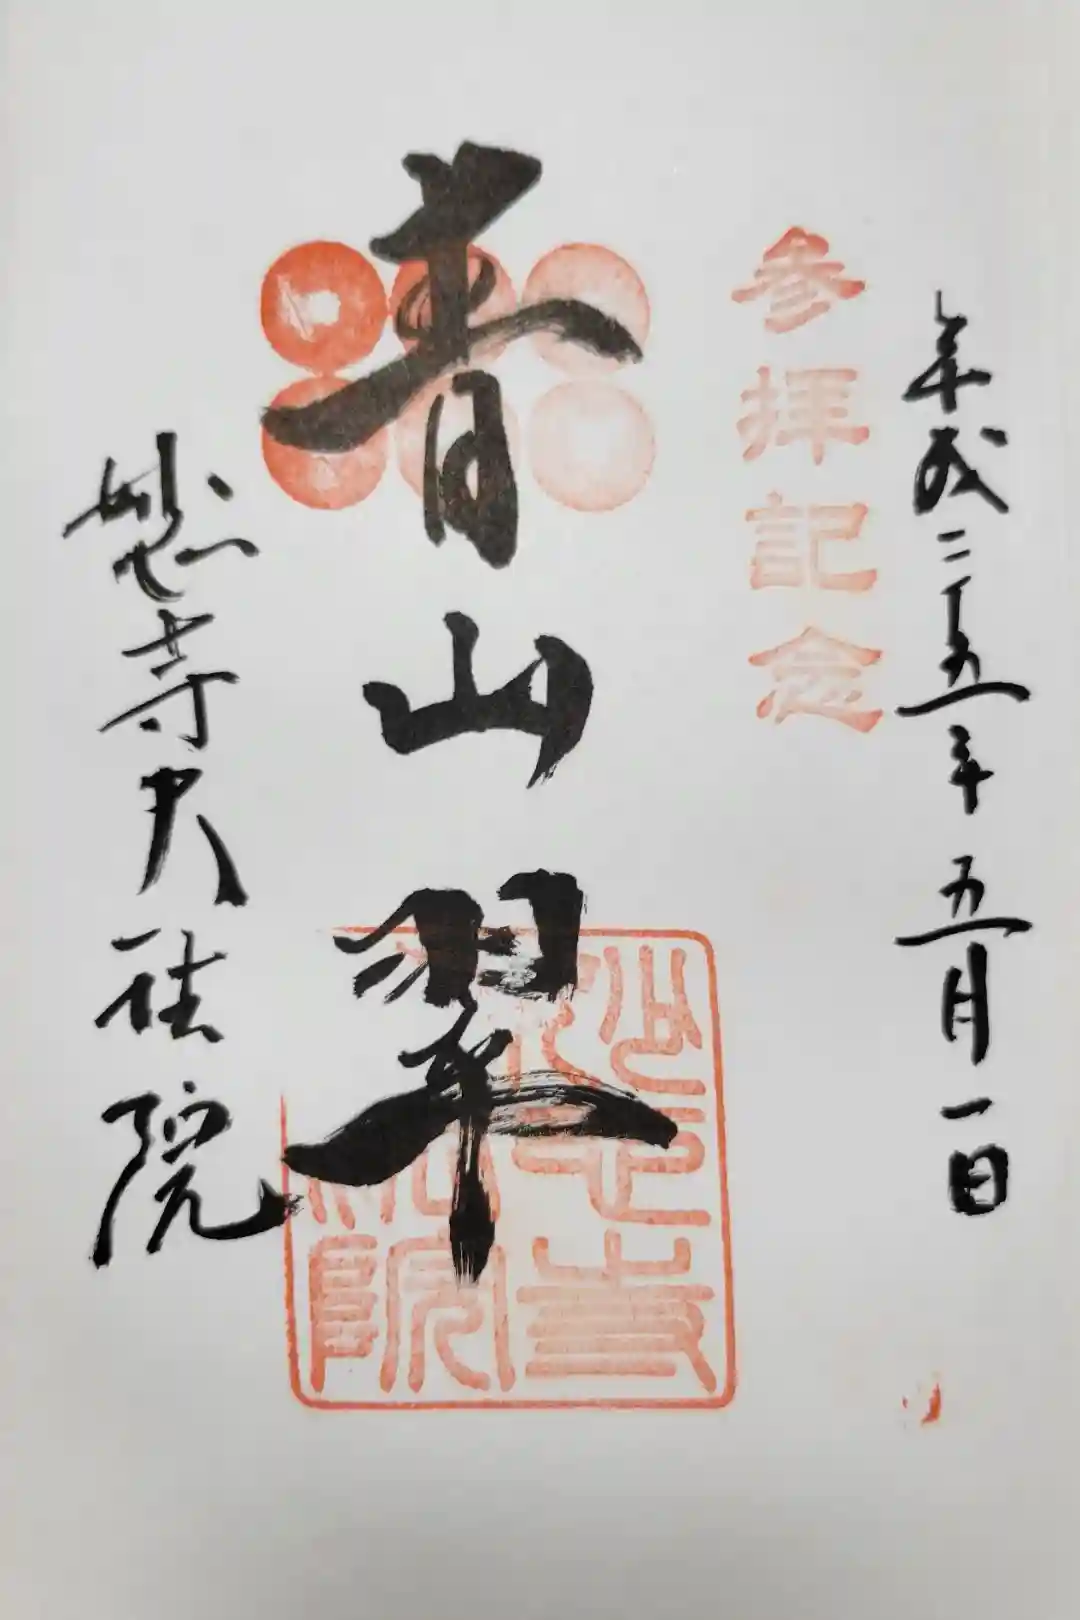 平成二十五年五月一日
参拝記念
青山翠
妙心寺大法院